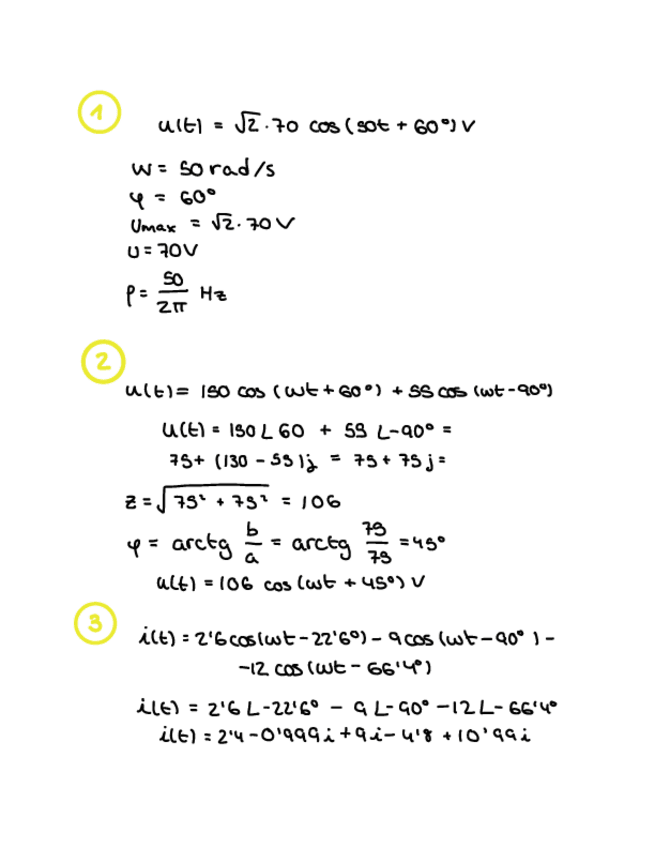 1
u(t) = √2 · 70 cos(50t + 60°) V
W = 50 rad/s
φ = 60°
Umax = √2 · 70 V
U = 70 V
f = 50/2π Hz
2
u(t) = 150 cos (ωt + 60°) + 55 cos (ωt - 90°)
U(t) = 150 ∟ 60 + 55 ∟-90° =
75 + (130 - 55)j = 75 + 75j =
z = √75² + 75² = 106
φ = arctg b/a = arctg 75/75 = 45°
u(t) = 106 cos (ωt + 45°) V
3
i(t) = 2'6 cos(ωt - 22'6°) - 9 cos (ωt - 90°) -
-12 cos (ωt - 66'4°)
i(t) = 2'6 ∟-22'6° - 9 ∟-90° - 12 ∟- 66'4°
i(t) = 2'4 - 0'999i + 9i - 4'8 + 10'99i